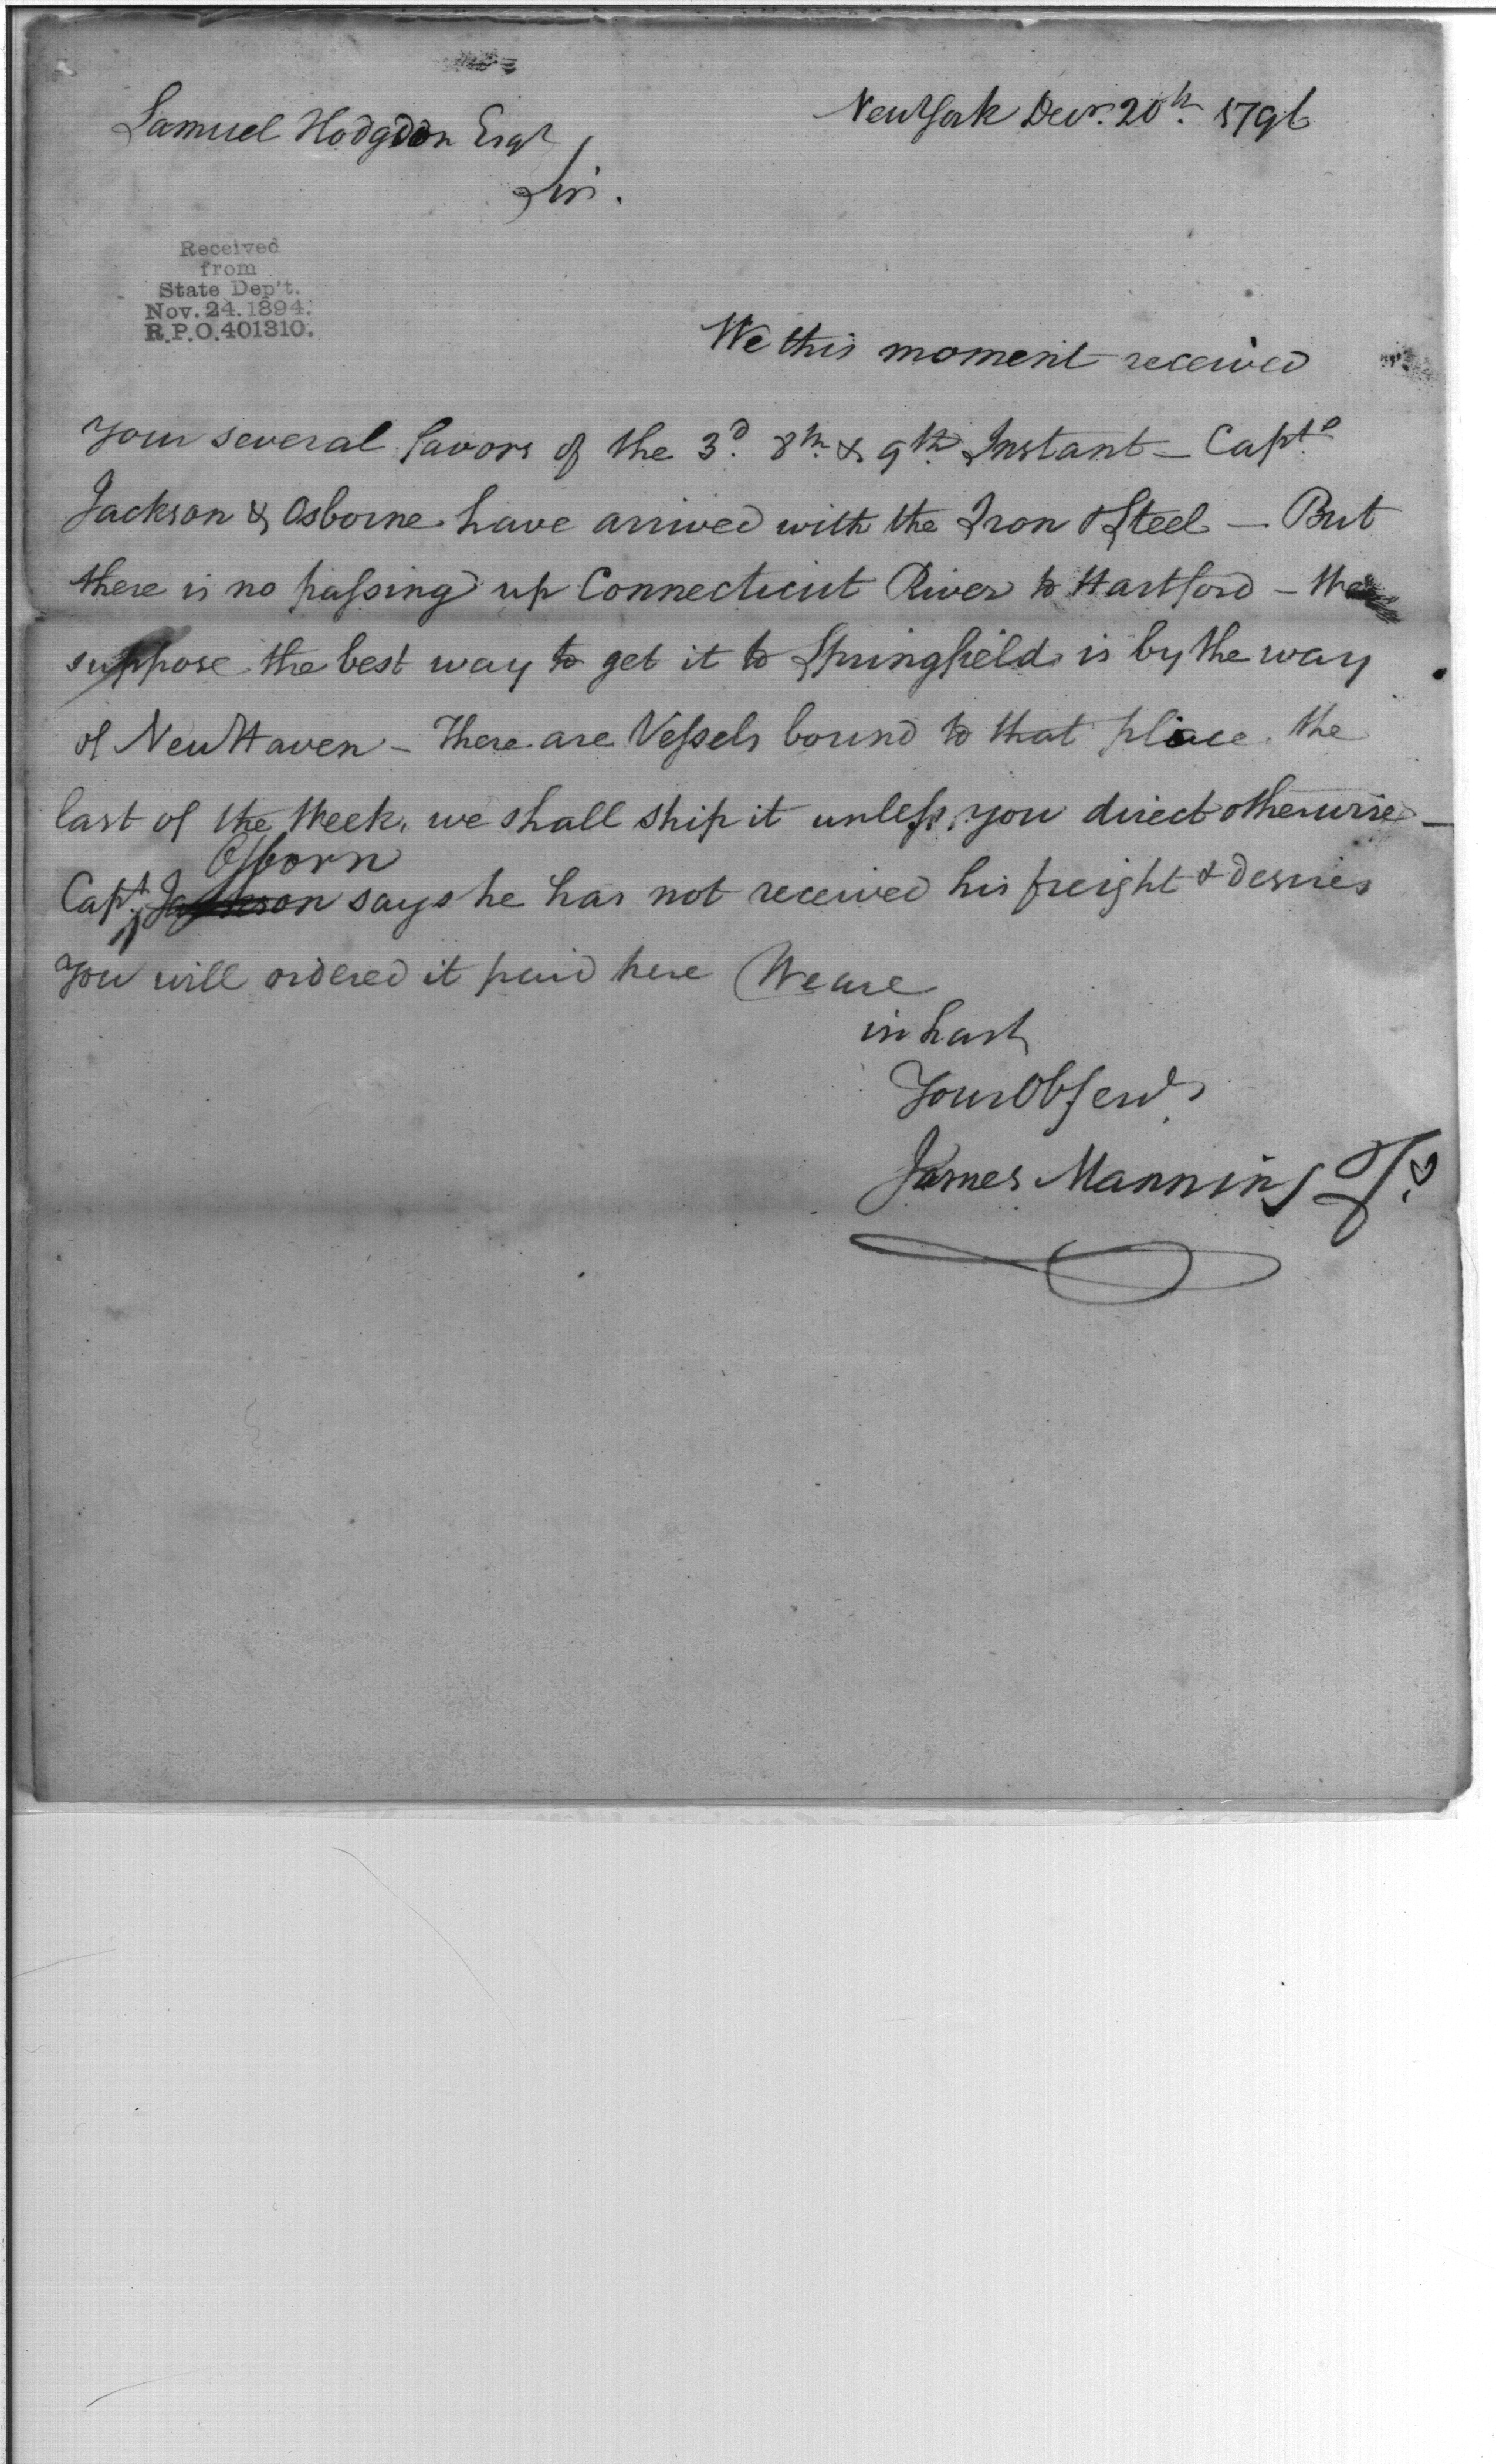 New York Decr. 20th. 1796
Samuel Hodgdon Esqr
Sir.
Received
from
State Dep't.
Nov. 24. 1894.
R.P.O. 401310.
We this moment received
Your several favors of the 3d. 8th. & 9th. Instant – Capts.
Jackson & Osborne have arrived with the Iron & Steel – But
there is no passing up Connecticut River to Hartford – We
suppose the best way to get it to Springfield is by the way
of New Haven – There are Vessels bound to that place the
last of the Week, we shall ship it unless you direct otherwise –
Osborn
Capt. Jackson says he has not received his freight & desires
You will ordered it paid here We are
in hast
Your Ob Servts.
James Manning